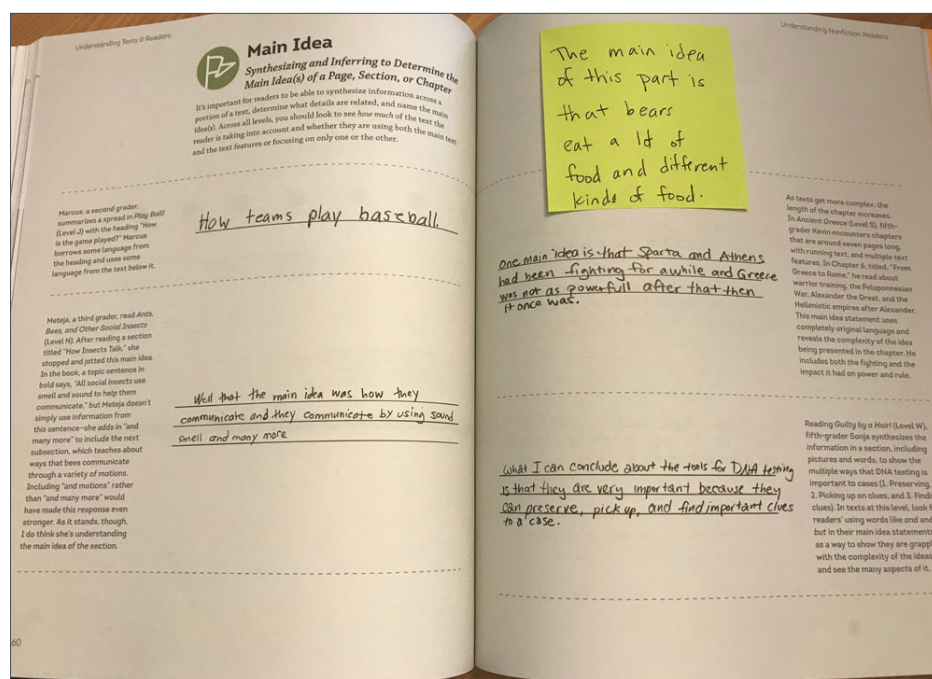 Understanding Texts & Readers
Main Idea
Synthesizing and Inferring to Determine the
Main Idea(s) of a Page, Section, or Chapter
It's important for readers to be able to synthesize information across a
portion of a text, determine what details are related, and name the main
idea(s). Across all levels, you should look to see how much of the text the
reader is taking into account and whether they are using both the main text
and the text features or focusing on only one or the other.
Marcus, a second grader,
summarizes a spread in Play Ball!
(Level J) with the heading "How
is the game played?" Marcus
borrows some language from
the heading and uses some
language from the text below it.
How teams play baseball.
Meteja, a third grader, read Ants,
Bees, and Other Social Insects
(Level N). After reading a section
titled "How Insects Talk," she
stopped and jotted this main idea.
In the book, a topic sentence in
bold says, "All social insects use
smell and sound to help them
communicate," but Meteja doesn't
simply use information from
this sentence—she adds in "and
many more" to include the next
subsection, which teaches about
ways that bees communicate
through a variety of motions.
Including "and motions" rather
than "and many more" would
have made this response even
stronger. As it stands, though,
I do think she's understanding
the main idea of the section.
Well that the main idea was how they
communicate and they communicate by using sound
smell and many more
60
Understanding Nonfiction Readers
The main idea
of this part is
that bears
eat a lot of
food and different
kinds of food.
One main idea is that Sparta and Athens
had been fighting for awhile and Greece
was not as powerfull after that then
it once was.
As texts get more complex, the
length of the chapter increases.
In Ancient Greece (Level S), fifth-
grader Kevin encounters chapters
that are around seven pages long,
with running text, and multiple text
features. In Chapter 6, titled, "From
Greece to Rome," he read about
warrior training, the Peloponnesian
War, Alexander the Great, and the
Hellenistic empires after Alexander.
This main idea statement uses
completely original language and
reveals the complexity of the idea
being presented in the chapter. He
includes both the fighting and the
impact it had on power and rule.
What I can conclude about the tools for DNA testing
is that they are very important because they
can preserve, pick up, and find important clues
to a case.
Reading Guilty by a Hair! (Level W),
fifth-grader Sonja synthesizes the
information in a section, including
pictures and words, to show the
multiple ways that DNA testing is
important to cases (1. Preserving,
2. Picking up on clues, and 3. Findi
clues). In texts at this level, look f
readers' using words like and and
but in their main idea statements
as a way to show they are grapp
with the complexity of the ideas
and see the many aspects of it.